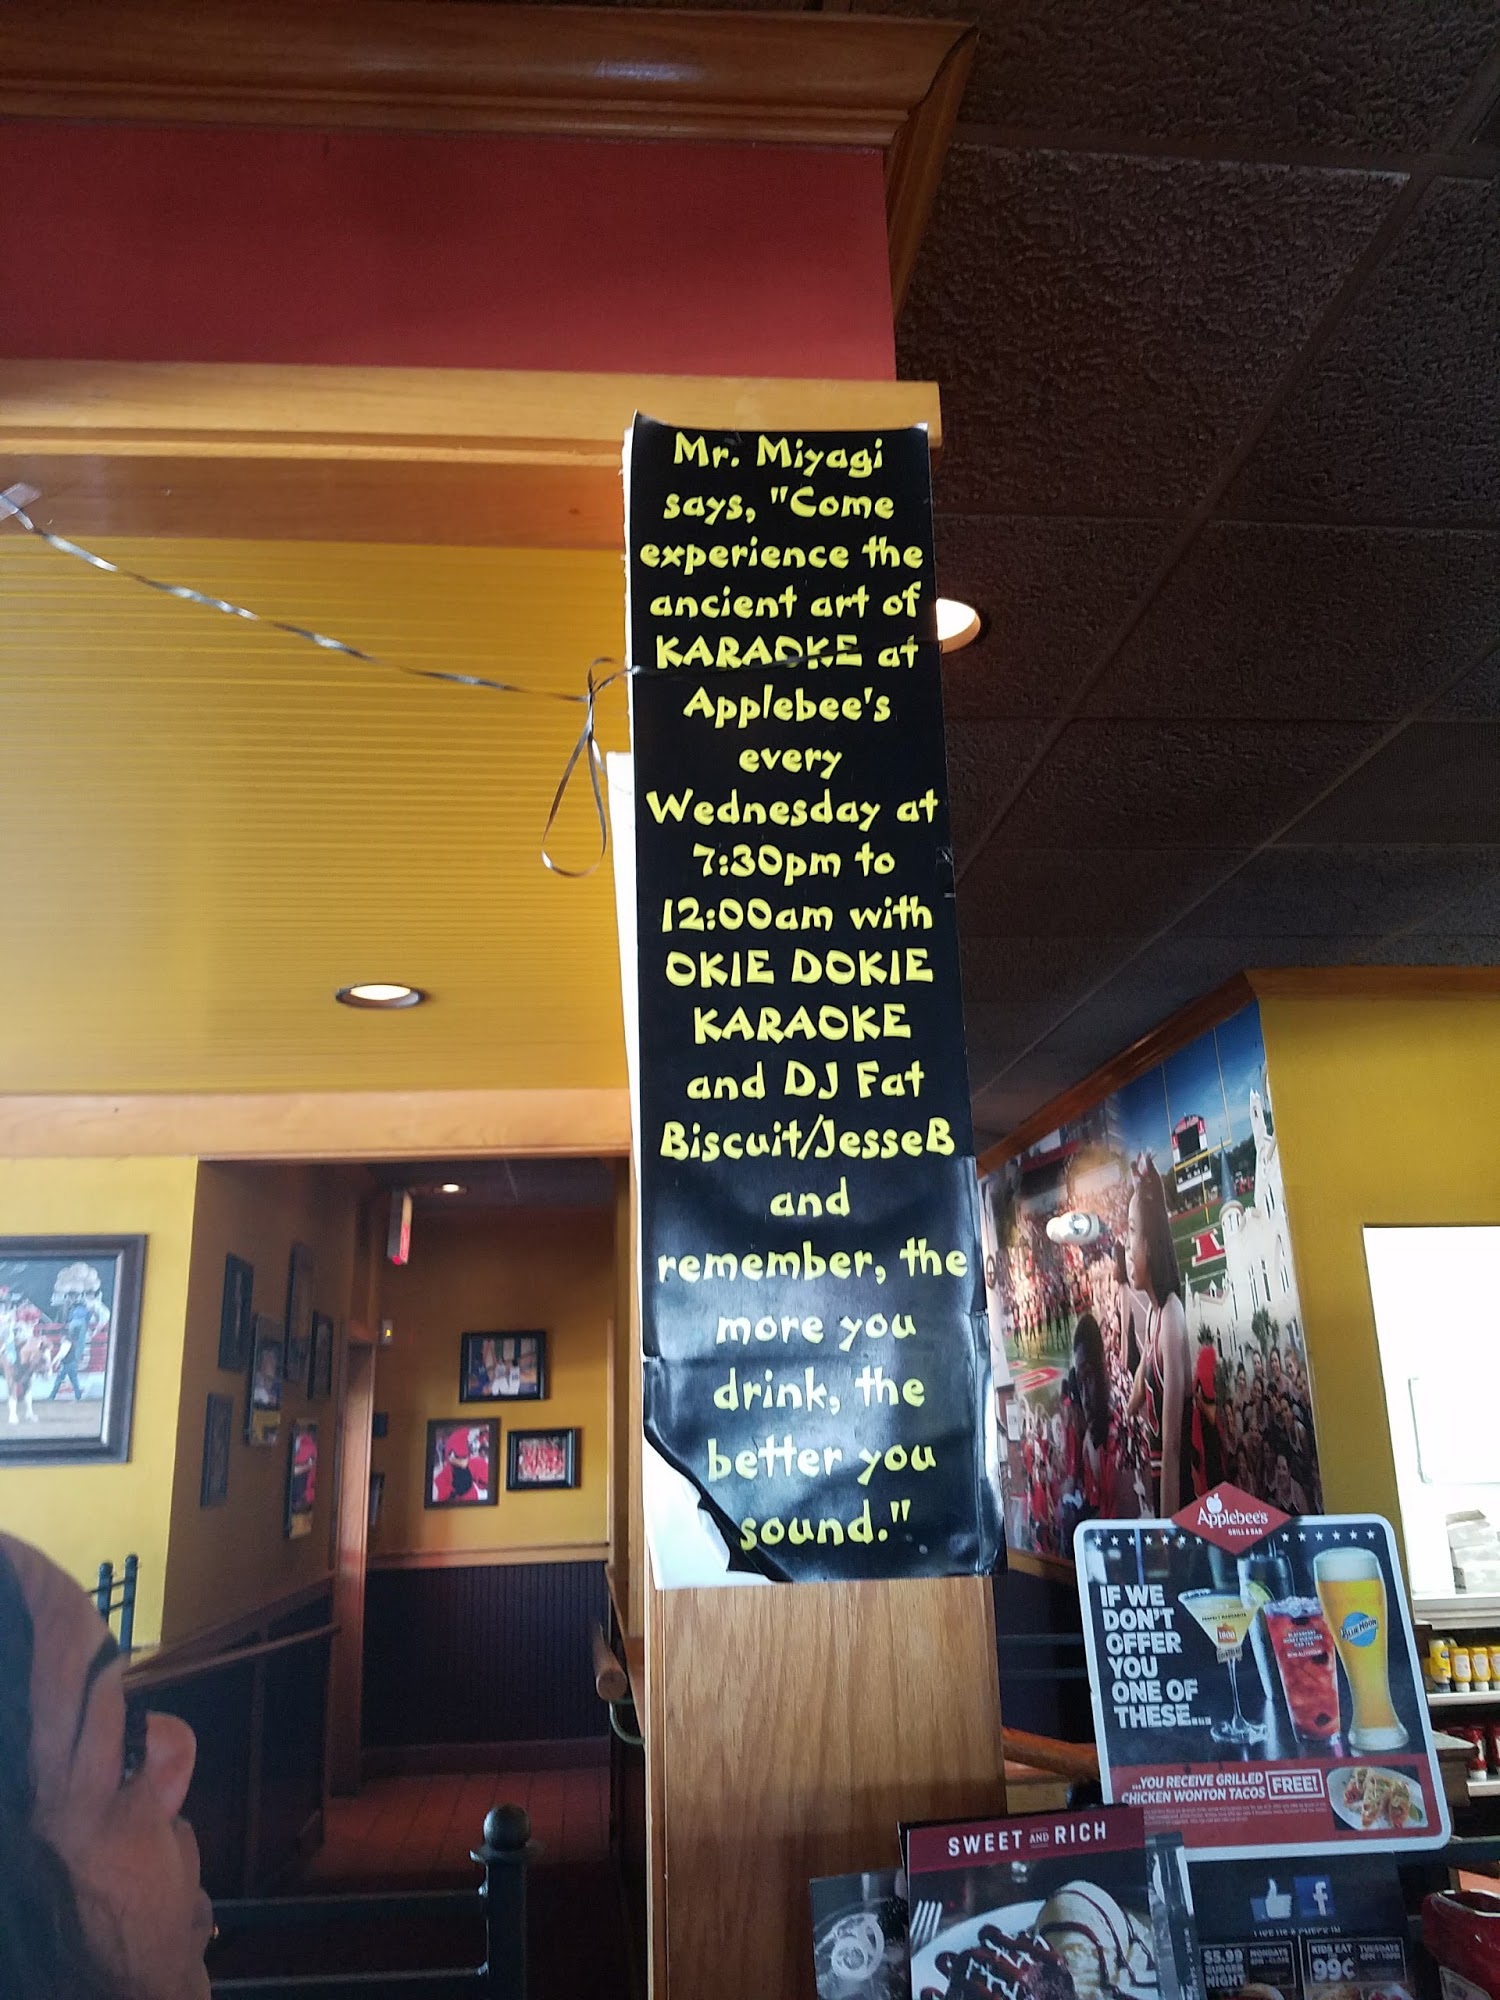 Mr. Miyagi
says, "Come
experience the
ancient art of
KARAOKE at
Applebee's
every
Wednesday at
7:30pm to
12:00am with
OKIE DOKIE
KARAOKE
and DJ Fat
Biscuit/JesseB
and
remember, the
more you
drink, the
better you
sound."
Applebee's
GRILL & BAR
IF WE
DON'T
OFFER
YOU
ONE OF
THESE...
1800
BLUE MOON
...YOU RECEIVE GRILLED
CHICKEN WONTON TACOS FREE!
SWEET AND RICH
f
$5.99
BURGER
NIGHT
MONDAYS
KIDS EAT
99¢
TUESDAYS